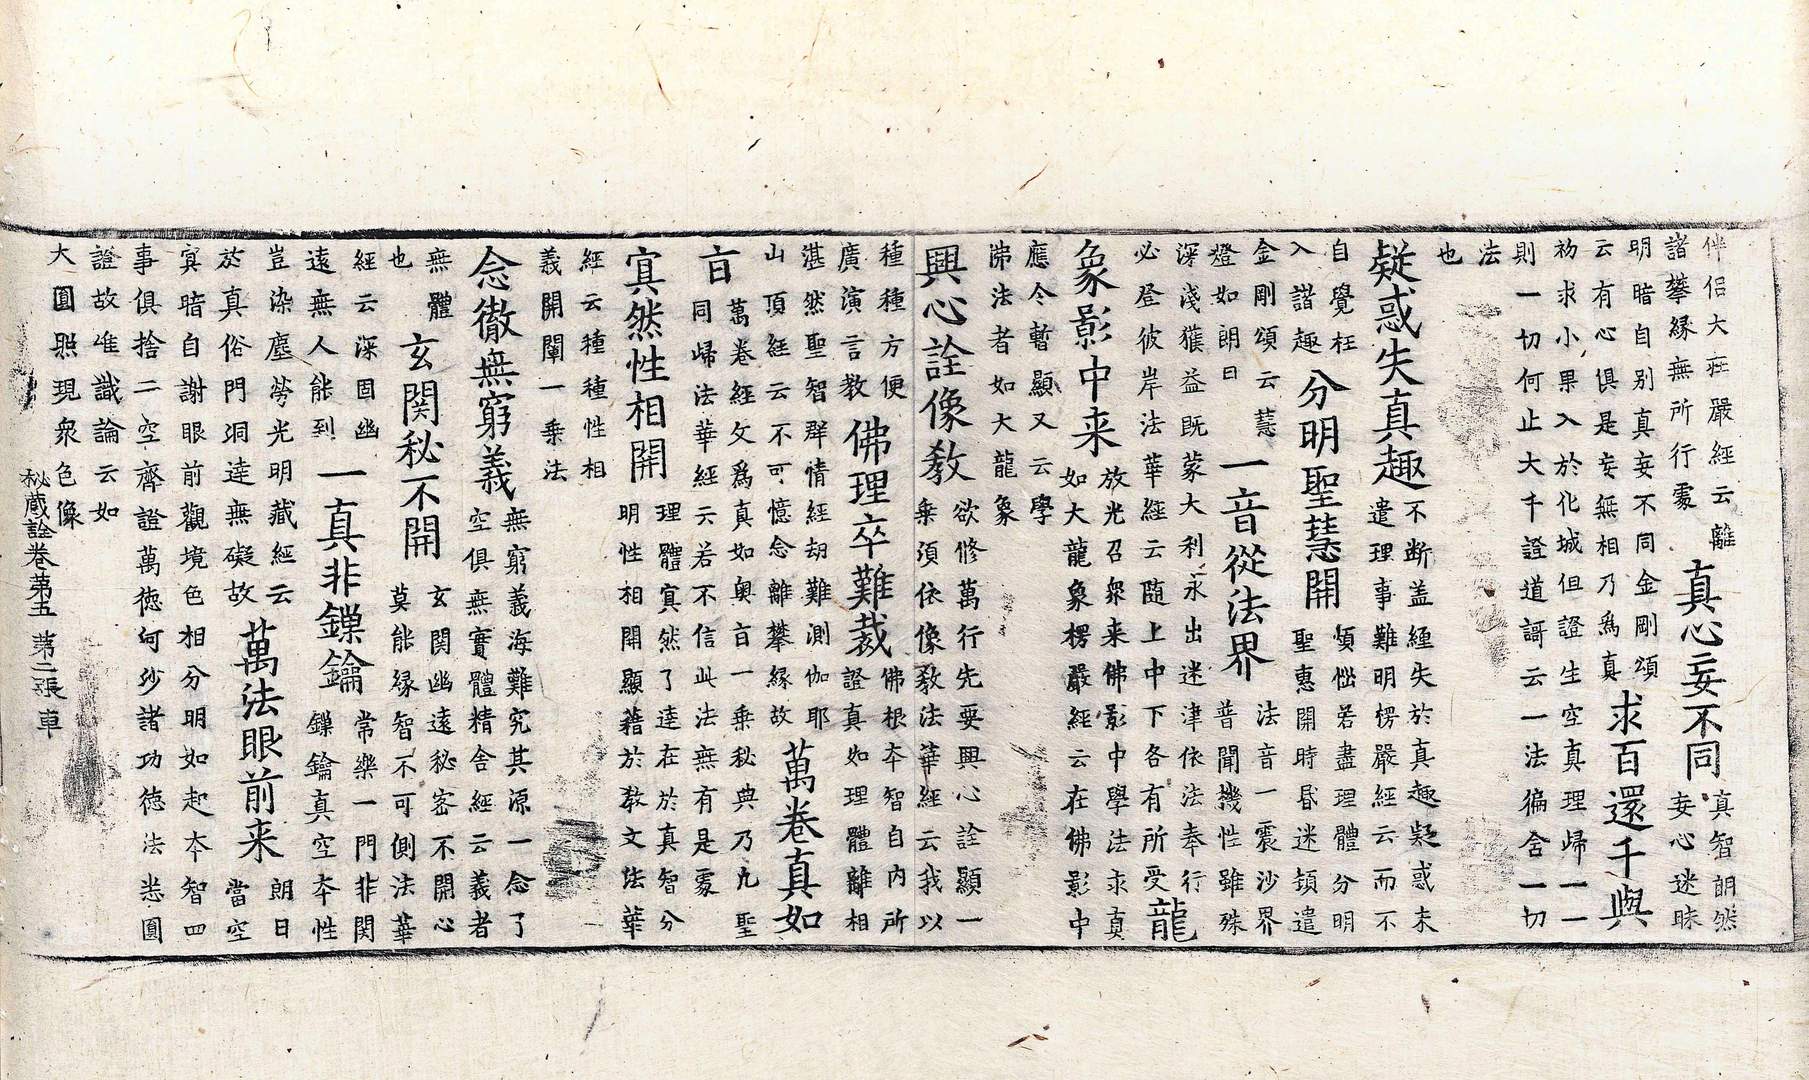 伴侣大莊嚴經云離
諸攀縁無所行處
真心妄不同
真智朗然
妄心迷昧
明暗自别真妄不同金剛頌
云有心俱是妄無相乃為真
求百還千與
初求小果入於化城但證生空真理歸一一
則一切何止大千證道謌云一法徧舍一切
法
也
疑惑失真趣
不断盖經失於真趣疑惑未
遣理事難明楞嚴經云而不
自覺枉
入諧趣
分明聖慧開
煩惱若盡理體分明
聖惠開時昏迷頓遣
金剛頌云慧
燈如朗日
一音從法界
法音一震沙界
普聞機性雖殊
深淺獲益既蒙大利永出迷津依法奉行
必登彼岸法華經云随上中下各有所受
龍
象影中来
放光召衆来佛影中學法求真
如大龍象楞嚴經云在佛影中
應今暫顯又云學
沸法者如大龍象
興心詮像教
欲修萬行先要興心詮顯一
乗須依像教法華經云我以
種種方便
廣演言教
佛理卒難裁
佛根本智自内所
證真如理體離相
湛然聖智群情經劫難測伽耶
山頂經云不可憶念離攀縁故
萬卷真如
㫖
萬卷經文為真如奥㫖一乗秘典乃九聖
同歸法華經云若不信此法無有是處
寘然性相開
理體寘然了達在於真智分
明性相開顯藉於教文法華
經云種種性相
義開闡一乗法
念徹無窮義
無窮義海難究其源一念了
空俱無實體精舍經云義者
無體
也
玄関秘不開
玄関幽遠秘宻不開心
莫能縁智不可側法華
經云深固幽
遠無人能到
一真非鏁鑰
常樂一門非関
鏁鑰真空本性
豈染塵勞光明藏經云
於真俗門洞達無礙故
萬法眼前来
朗日
當空
寘暗自謝眼前觀境色相分明如起本智四
事俱捨二空齊證萬徳何沙諸功徳法悉圓
證故唯識論云如
大圓照現衆色像
秘蔵詮卷第五 第二張 車